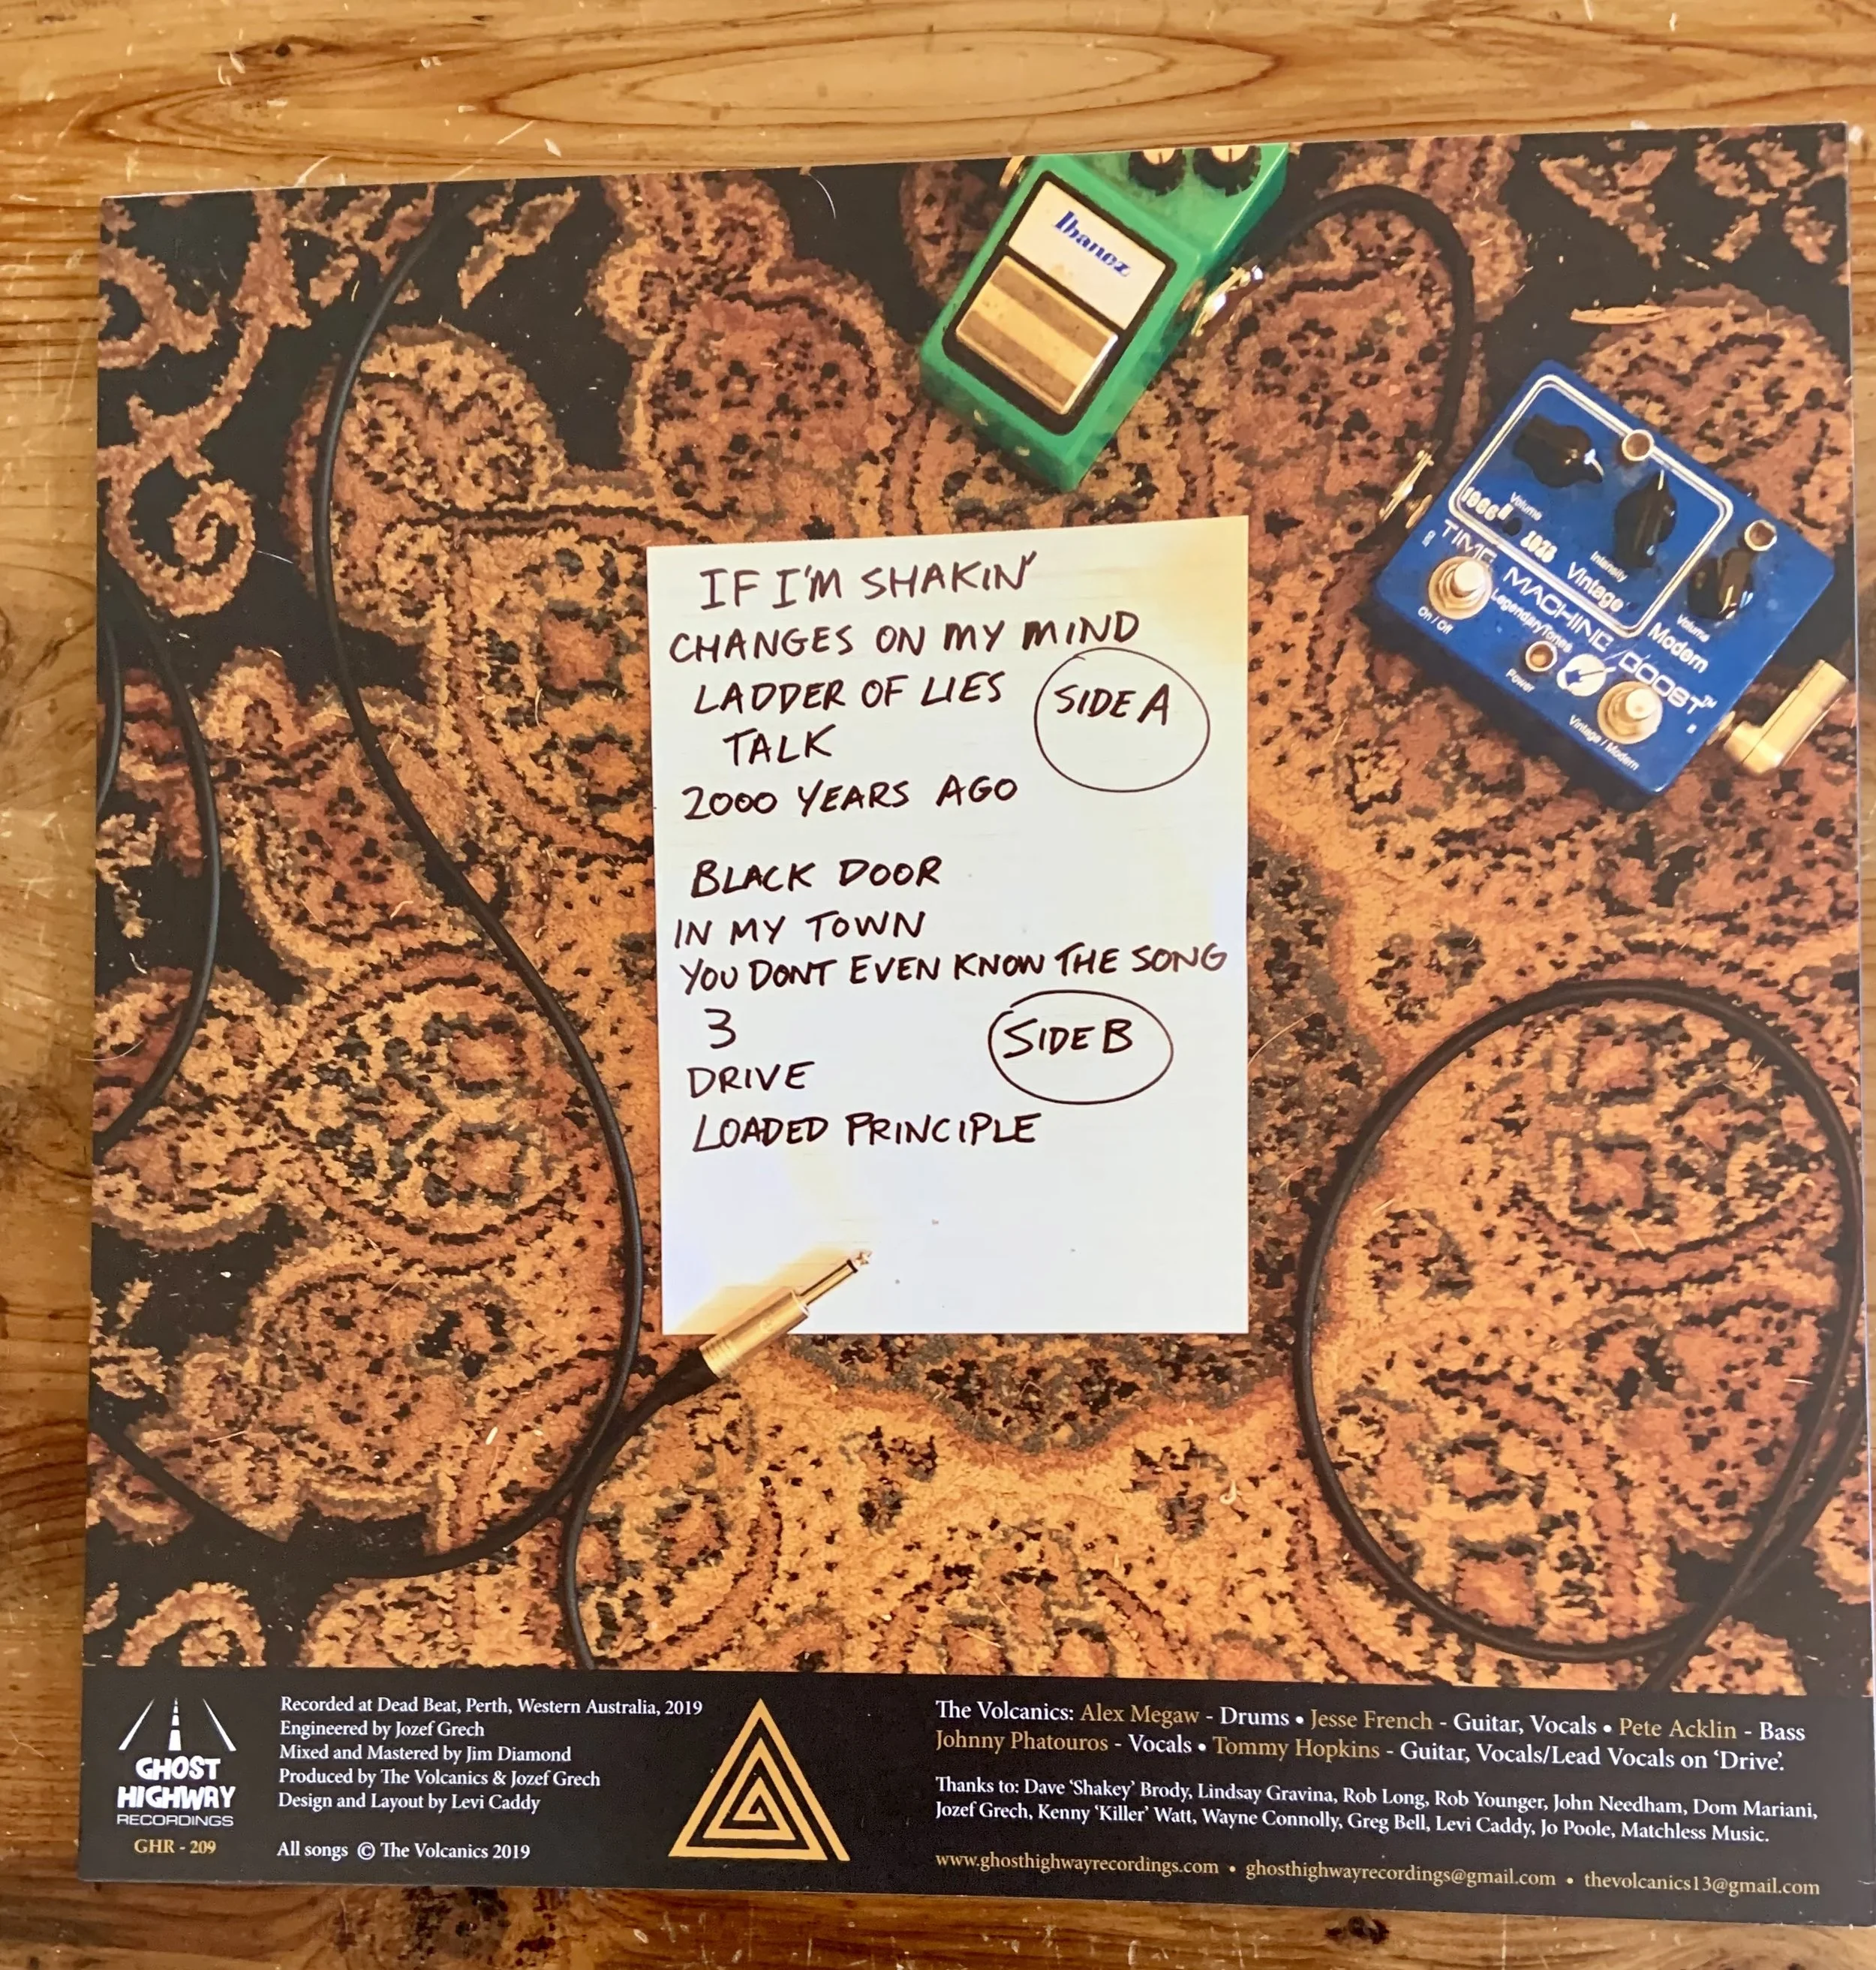 Ibanez
1966
Volume
1988
Intensity
Vintage
Volume
Modern
TIME MACHINE BOOST™
LegendaryTones
On / Off
Power
Vintage / Modern
IF I'M SHAKIN'
CHANGES ON MY MIND
LADDER OF LIES
SIDE A
TALK
2000 YEARS AGO
BLACK DOOR
IN MY TOWN
YOU DONT EVEN KNOW THE SONG
3
SIDE B
DRIVE
LOADED PRINCIPLE
GHOST
HIGHWAY
RECORDINGS
GHR - 209
Recorded at Dead Beat, Perth, Western Australia, 2019
Engineered by Jozef Grech
Mixed and Mastered by Jim Diamond
Produced by The Volcanics & Jozef Grech
Design and Layout by Levi Caddy
All songs © The Volcanics 2019
The Volcanics: Alex Megaw - Drums • Jesse French - Guitar, Vocals • Pete Acklin - Bass
Johnny Phatouros - Vocals • Tommy Hopkins - Guitar, Vocals/Lead Vocals on 'Drive'.
Thanks to: Dave 'Shakey' Brody, Lindsay Gravina, Rob Long, Rob Younger, John Needham, Dom Mariani,
Jozef Grech, Kenny 'Killer' Watt, Wayne Connolly, Greg Bell, Levi Caddy, Jo Poole, Matchless Music.
www.ghosthighwayrecordings.com • ghosthighwayrecordings@gmail.com • thevolcanics13@gmail.com